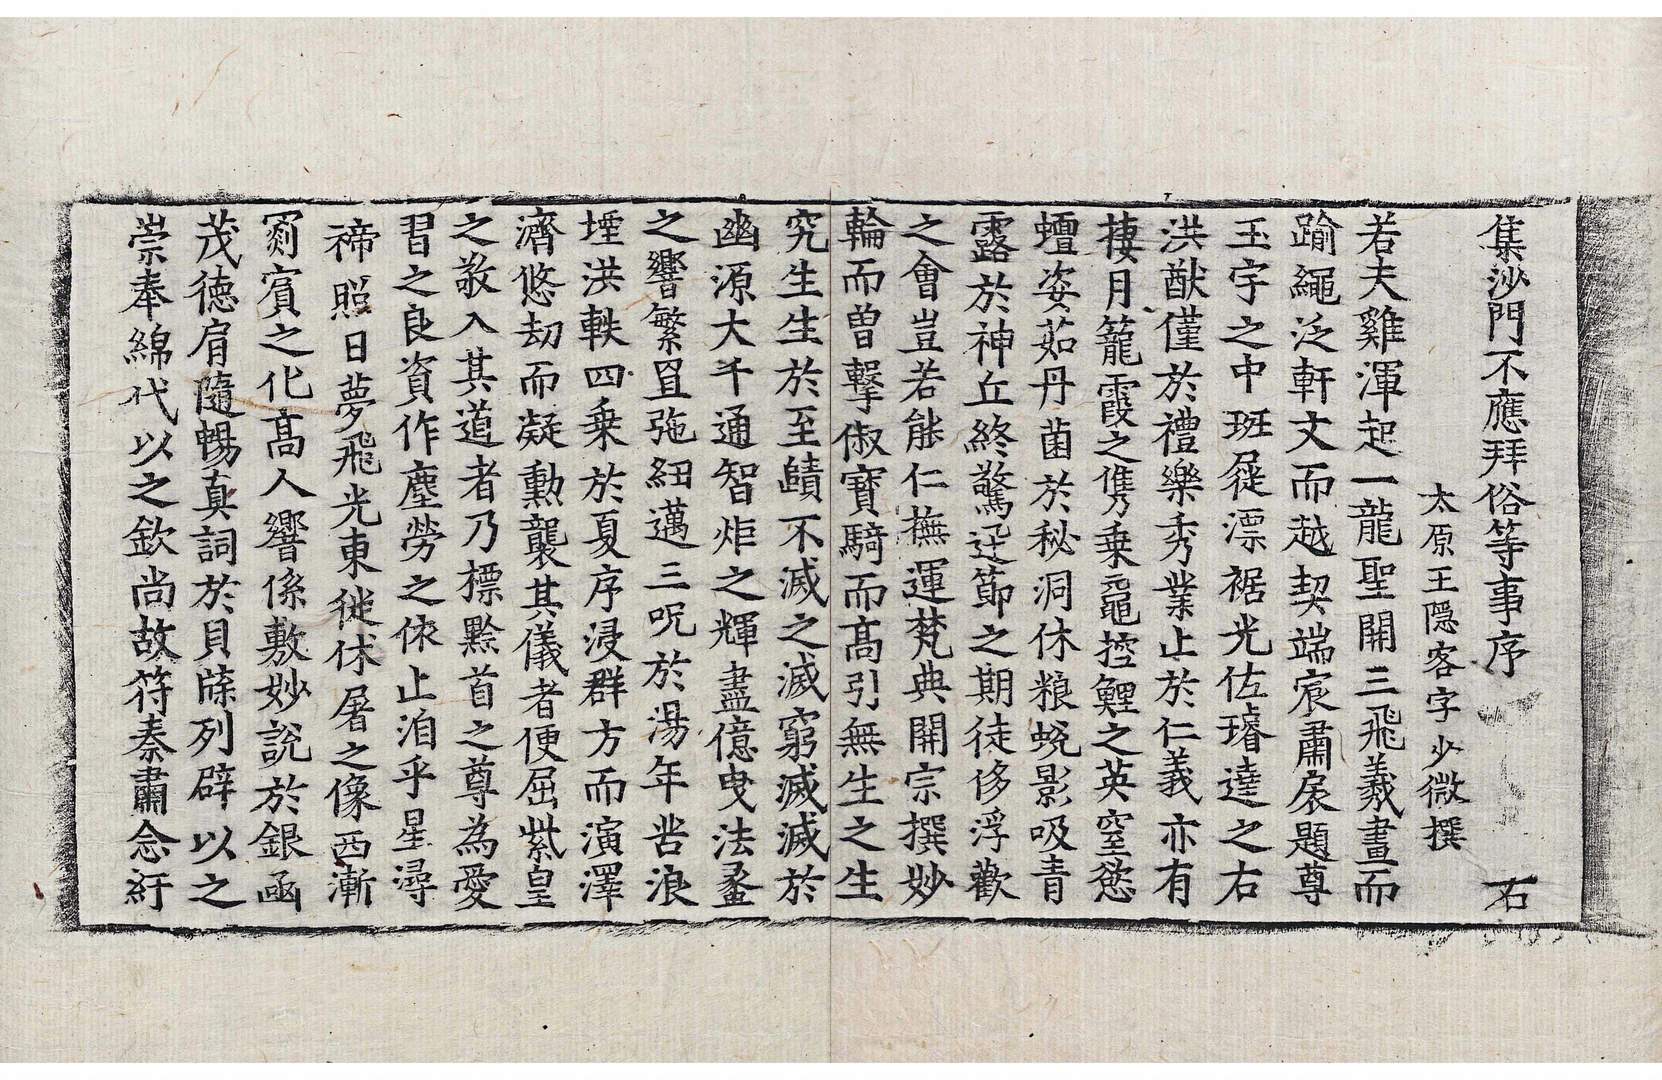 集沙門不應拜俗等事序 右
太原王隱客字少微撰
若夫雞渾起一龍聖開三飛羲畫而
踰繩泛軒文而越契端宸肅扆題尊
玉宇之中班屣漂裾光佐璿達之右
洪猷僅於禮樂秀業止於仁義亦有
棲月籠霞之儁乗龜控鯉之英窒慾
蟺姿茹丹菌於秘洞休粮蛻影吸青
露於神丘終驚飛迊節之期徒侈浮歡
之會豈若能仁撫運梵典開宗撰妙
輪而曽擊俶寶騎而髙引無生之生
究生生於至賾不滅之滅窮滅滅於
幽源大千通智炬之輝盡億曵法蠡
之響繁罝弛紐邁三呪於湯年沓浪
堙洪軼四乗於夏序浸群方而演澤
濟悠劫而凝勲襲其儀者便屈紫皇
之敬入其道者乃摽黔首之尊為愛
習之良資作塵勞之依止洎乎星潯
褅照日夢飛光東徙休屠之像西漸
罽賓之化髙人響係敷妙說於銀函
茂德肩隨暢真詞於貝牒列辟以之
崇奉綿代以之欽尚故苻秦肅念紆